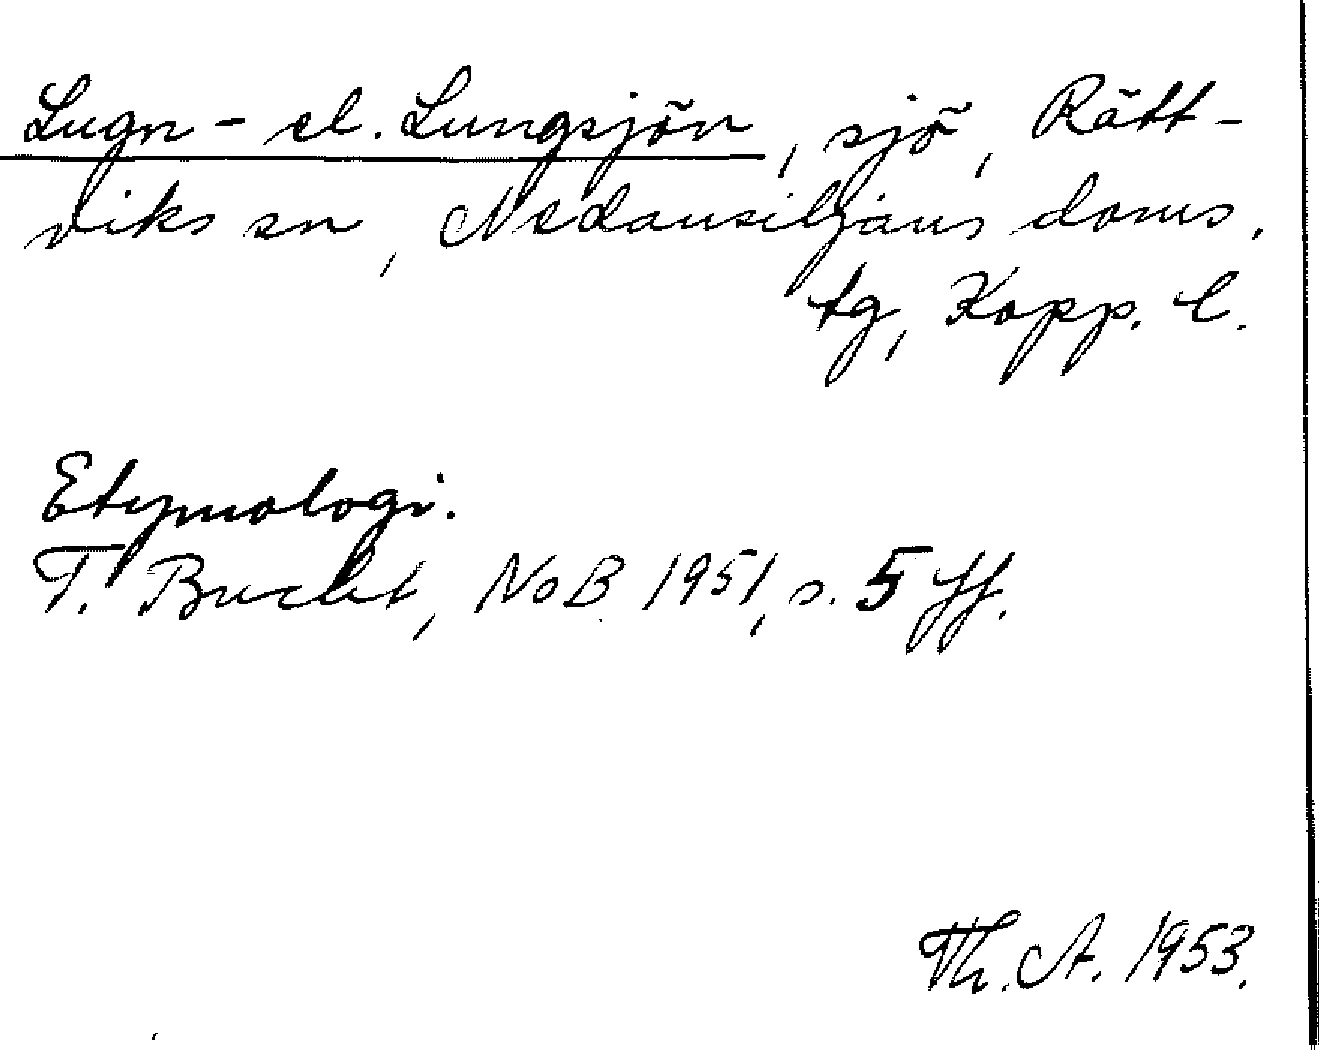 Lugn- el. Lungsjön, sjö, Rätt-
viks sn, Nedansiljans doms.
tg, Kopp. l.
Etymologi.
T. Bucht, NoB 1951, s. 5 ff.
Th. A. 1953.